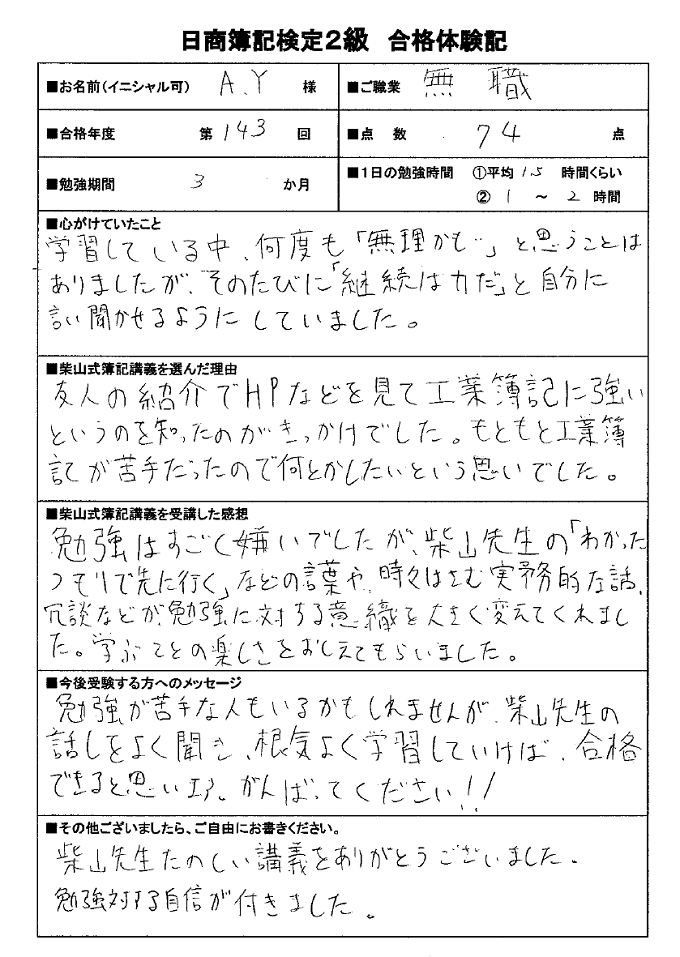 日商簿記検定2級 合格体験記
■お名前(イニシャル可) A.Y 様 ■ご職業 無職
■合格年度 第143回 ■点数 74 点
■勉強期間 3 か月 ■1日の勉強時間 ①平均 1.5 時間くらい
② 1 ～ 2 時間
■心がけていたこと
学習している中、何度も「無理かも…」と思うことは
ありましたが、そのたびに「継続は力だ」と自分に
言い聞かせるようにしていました。
■柴山式簿記講義を選んだ理由
友人の紹介でHPなどを見て工業簿記に強い
というのを知ったのがきっかけでした。もともと工業簿
記が苦手だったので何とかしたいという思いでした。
■柴山式簿記講義を受講した感想
勉強はすごく嫌いでしたが、柴山先生の「わかった
つモリで先に行く」などの言葉や、時々はさむ実務的な話、
冗談などが、勉強に対する意織を大きく変えてくれまし
た。学ぶことの楽しさをおしえてもらいました。
■今後受験する方へのメッセージ
勉強が苦手な人もいるかもしれませんが、柴山先生の
話しをよく聞き、根気よく学習していけば、合格
できると思います。がんばってください!!
■その他ございましたら、ご自由にお書きください。
柴山先生たのしい講義をありがとうございました。
勉強対する自信が付きました。